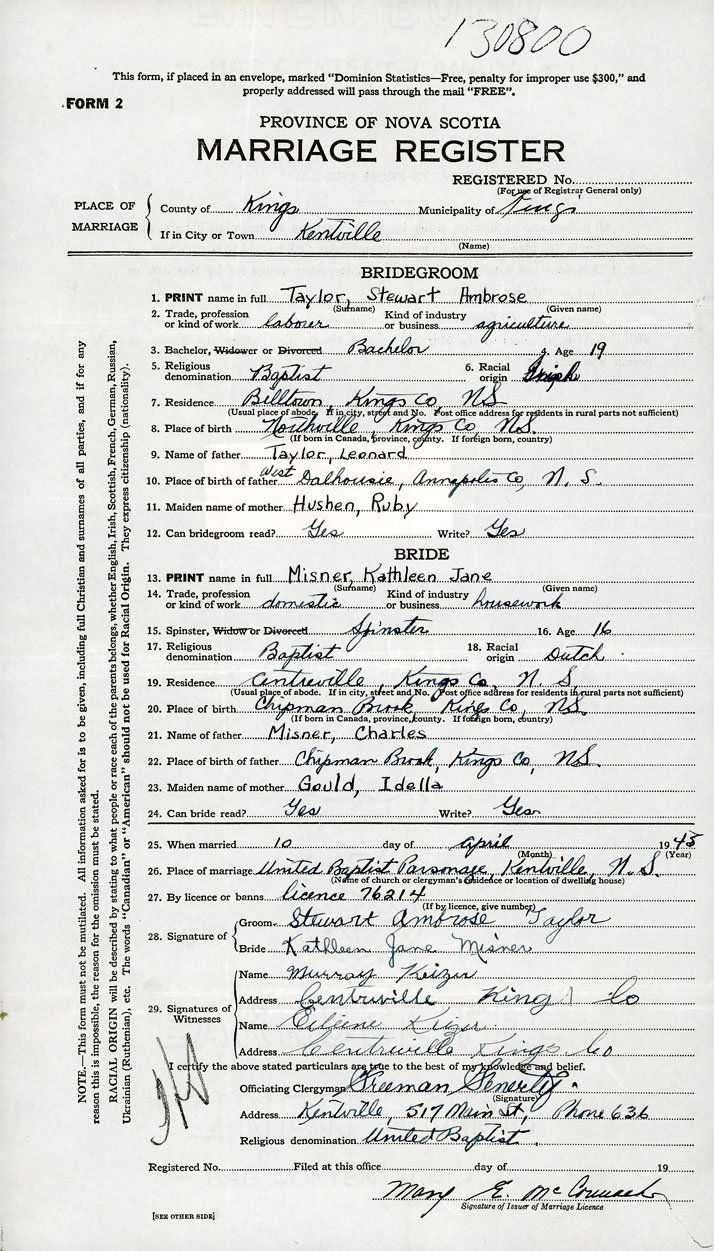 130800
This form, if placed in an envelope, marked “Dominion Statistics—Free, penalty for improper use $300,” and
properly addressed will pass through the mail “FREE”.
FORM 2
PROVINCE OF NOVA SCOTIA
MARRIAGE REGISTER
REGISTERED No.
(For use of Registrar General only)
PLACE OF MARRIAGE
County of Kings Municipality of Kings
If in City or Town Kentville
(Name)
BRIDEGROOM
1. PRINT name in full Taylor, Stewart Ambrose
(Surname) (Given name)
2. Trade, profession or kind of work laborer Kind of industry or business agriculture
3. Bachelor, Widower or Divorced Bachelor 4. Age 19
5. Religious denomination Baptist 6. Racial origin Irish
7. Residence Billtown, Kings Co, N.S.
(Usual place of abode. If in city, street and No. Post office address for residents in rural parts not sufficient)
8. Place of birth Northville, Kings Co, N.S.
(If born in Canada, province, county. If foreign born, country)
9. Name of father Taylor, Leonard
10. Place of birth of father West Dalhousie, Annapolis Co, N. S.
11. Maiden name of mother Hushen, Ruby
12. Can bridegroom read? Yes Write? Yes
BRIDE
13. PRINT name in full Misner, Kathleen Jane
(Surname) (Given name)
14. Trade, profession or kind of work domestic Kind of industry or business housework
15. Spinster, Widow or Divorced Spinster 16. Age 16
17. Religious denomination Baptist 18. Racial origin Dutch
19. Residence Centreville, Kings Co, N. S.
(Usual place of abode. If in city, street and No. Post office address for residents in rural parts not sufficient)
20. Place of birth Chipman Brook, Kings Co, N.S.
(If born in Canada, province, county. If foreign born, country)
21. Name of father Misner, Charles
22. Place of birth of father Chipman Brook, Kings Co, N.S.
23. Maiden name of mother Gould, Idella
24. Can bride read? Yes Write? Yes
25. When married 10 day of April 1945
(Month) (Year)
26. Place of marriage United Baptist Parsonage, Kentville, N. S.
(Name of church or clergyman's residence or location of dwelling house)
27. By licence or banns licence 76214
(If by licence, give number)
28. Signature of
Groom Stewart Ambrose Taylor
Bride Kathleen Jane Misner
29. Signatures of Witnesses
Name Murray Keizer
Address Centreville Kings Co
Name Eilene Keizer
Address Centreville Kings Co
I certify the above stated particulars are true to the best of my knowledge and belief.
Officiating Clergyman Freeman Fenerty
(Signature)
Address Kentville, 517 Main St, Phone 636
Religious denomination United Baptist
Registered No. Filed at this office day of 19
Mary E.
Signature of Issuer of Marriage Licence
[SEE OTHER SIDE]
NOTE.—This form must not be mutilated. All information asked for is to be given, including full Christian and surnames of all parties, and if for any
reason this is impossible, the reason for the omission must be stated.
RACIAL ORIGIN will be described by stating to what people or race each of the parents belongs, whether English, Irish, Scottish, French, German, Russian,
Ukrainian (Ruthenian), etc. The words “Canadian” or “American” should not be used for Racial Origin. They express citizenship (nationality).